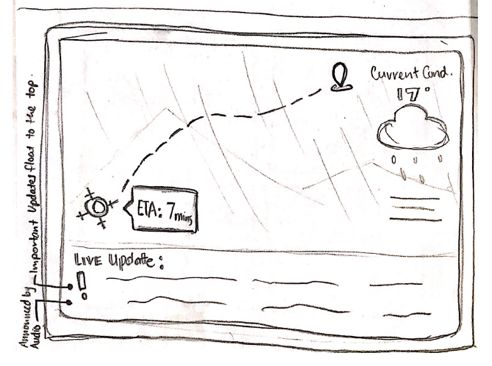 Current Cond.
17°
ETA: 7 mins
LIVE Update:
!
Important Updates float to the top.
Announced by
Audio